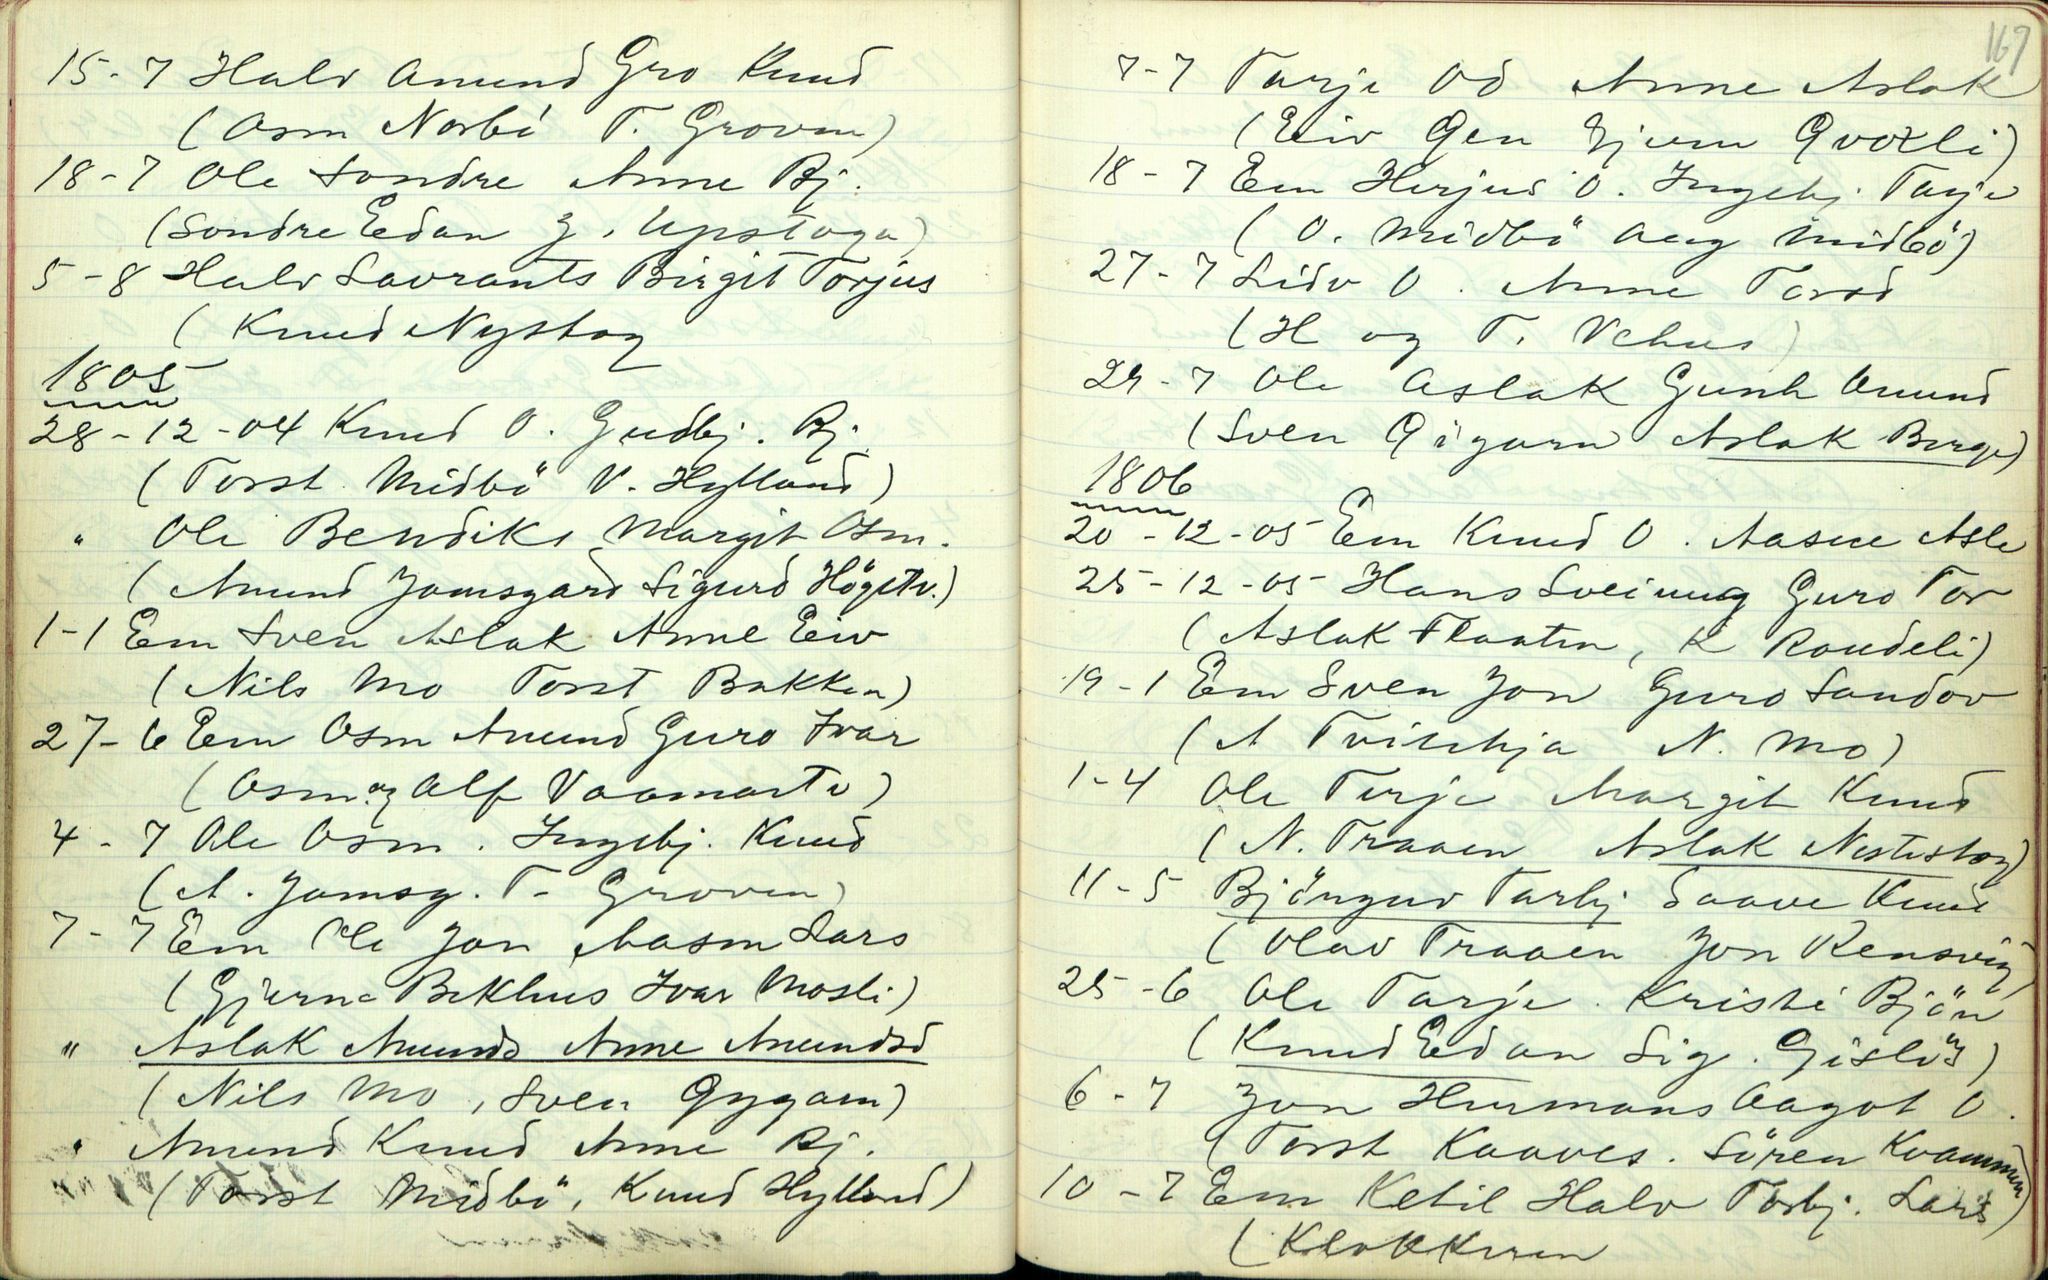 15-7 Halv Amund Gro Knud
(Osm Norbö T. Groven)
18-7 Ole Sondre Anne Bj.
(Sondre Edan J. Upstoga)
5-8 Halv Lavrants Birgit Torjus
(Knud Nystog
1805
28-12-04 Knud O. Gudbj. Bj.
(Torst. Midbö V. Hylland)
" Ole Bendiks Margit Osm.
(Amund Jamsgård Sigurd Högetv.)
1-1 Em Sven Aslak Anne Eiv
(Nils Mo Torst Bakken)
27-6 Em Osm Amund Guro Ivar
(Osm og Alf Vaamartv)
4-7 Ole Osm. Ingebj. Knud
(A. Jamsg. T. Groven)
7-7 Em Ole Jon Aasm Lars
(Gjerne Bekhus Ivar Mosli)
" Aslak Amunds Anne Amundsd
(Nils Mo, Sven Gygarn)
" Amund Knud Anne Bj.
(Torst Midbö, Knud Hylland)
167
7-7 Tarje Od Anne Aslak
(Eiv Gjern Qvotli)
18-7 Em Herjus O. Ingebj. Tarje
(O. Midbö Aug Midbö)
27-7 Lidv O. Anne Torod
(H og T. Vehus)
29-7 Ole Aslak Gunh Amund
(Sven Gigarn Aslak Berge)
1806
20-12-05 Em Knud O. Aasne Asle
25-12-05 Hans Sveinung Guro Tor
(Aslak Flaatin, K Roudeli)
19-1 Em Sven Jon Guro Sondov
(A N. Mo)
1-4 Ole Terje Margit Knud
(N. Traaen Aslak Nestestog)
11-5 Bjönguv Tarbj Saave Knud
(Olav Traaen Jon Rensvig)
25-6 Ole Tarje. Kristi Bjön
(Knud Edan Sig. Gislöy)
6-7 Jon Hermans Aagot O.
(Torst Kaaves. Sören Kvammen)
10-7 Em Ketil Halv Torbj. Lars
(Klokkeren